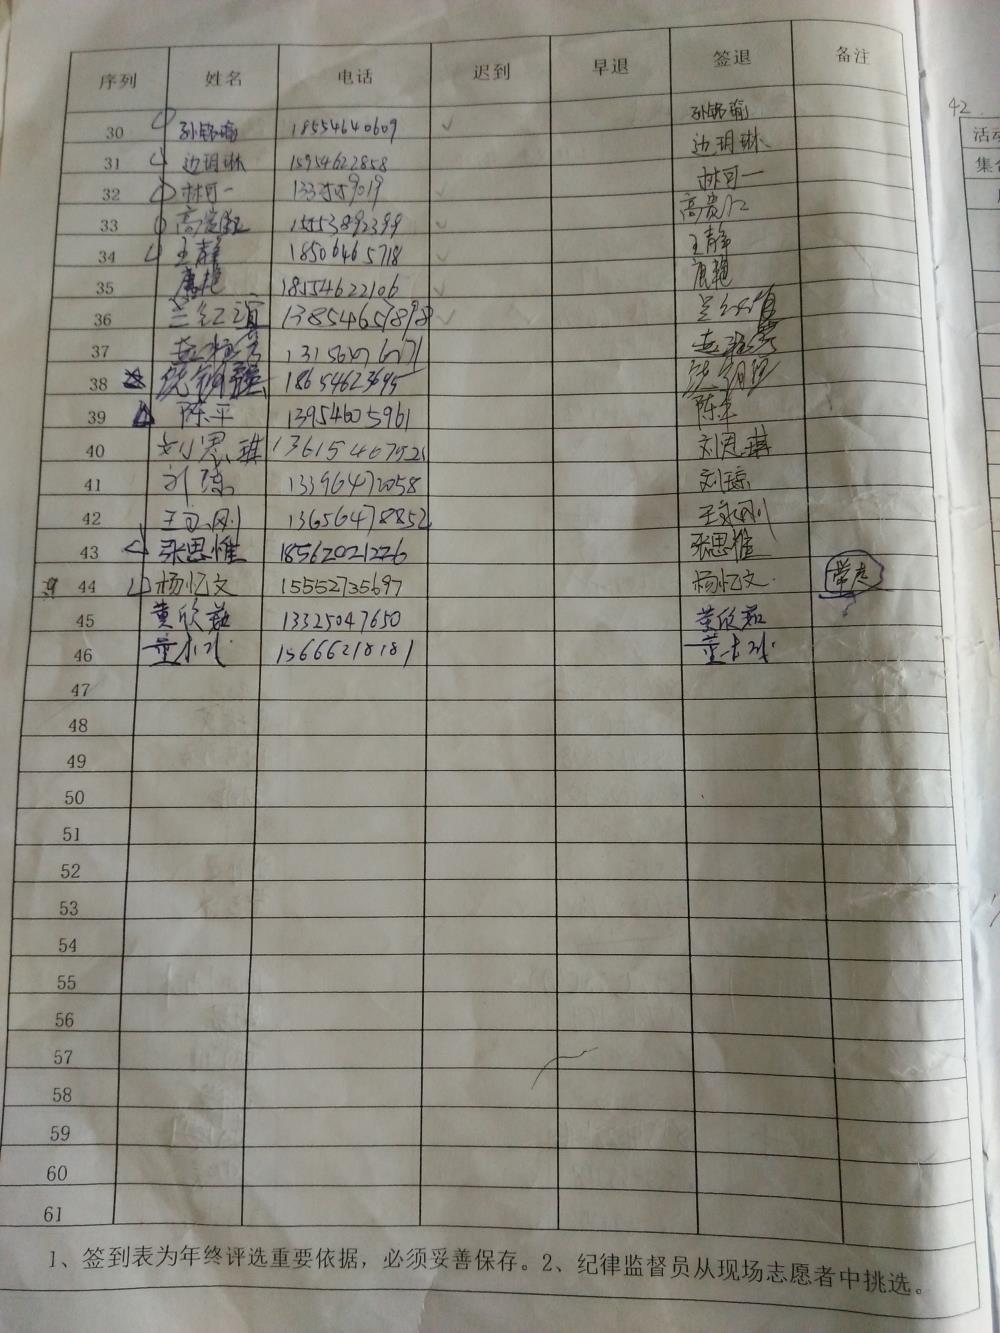 序列 姓名 电话 迟到 早退 签退 备注
30 孙铭瑜 18554640609 ✓ 孙铭瑜
31 边玥琳 15954622858 边玥琳
32 林可一 林可一
33 高贵红 15553892399 高贵红
34 王静 18506465718 王静
35 唐艳 18554622106 唐艳
36 兰红 ✓ 兰红
37
38 18654623695
39 陈平 13954605961 陈平
40 刘思琪 13615467521 刘思琪
41 刘琼 13396472058 刘琼
42 13656478852
43 张思惟 18562021226 张思惟
44 杨忆文 15552735697 杨忆文
45 黄欣茹 13325047650 黄欣茹
46 董 15666218181 董
47
48
49
50
51
52
53
54
55
56
57
58
59
60
61
1、签到表为年终评选重要依据，必须妥善保存。2、纪律监督员从现场志愿者中挑选。
42
活动
集合